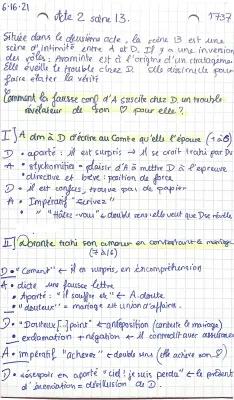 6-16-21
Acte 2 scène 13.
1737
Située dans le deuxième acte, la scène 13 est une
scène d'intimité entre A et D. Il y a une inversion
des rôles: Araminte est à l'origine d'un stratagème.
Elle éveille le trouble chez D. Elle dissimule pour
faire éclater la vérité
Comment la fausse conf d'A suscite chez D. un trouble
révélateur de son ♡ pour elle?
I] A dm à D d'écrire au Comte qu'elle l'épouse
D • aparté: il est surpris → il se croit trahi par Du
A • stychomities = plaisir d'A à mettre D à l'épreuve
• directive et brève: position de force
D • il est confus, trouve pas de papier
A • Impératif "écrivez"
• "Hâtez-vous" = double sens: elle veut que D se révèle
II] Dorante trahi son amour en contestant le mariage
(7 à 16)
D • "Comment" ← il est surpris, en incompréhension
A • dicte une fausse lettre
• Aparté: "il souffre" ← A doute
• "douteux" = mariage est union d'affaire.
D • "Douteux [..] point" ← antéposition (conteste le mariage)
• exclamation + négation ← il contredit avec assurance
A • impératif "achevez" ← double sens (elle achève son ♡)
D • désespoir en aparté "ciel! je suis perdu" ← le présent
d'énonciation = désillusion de D.